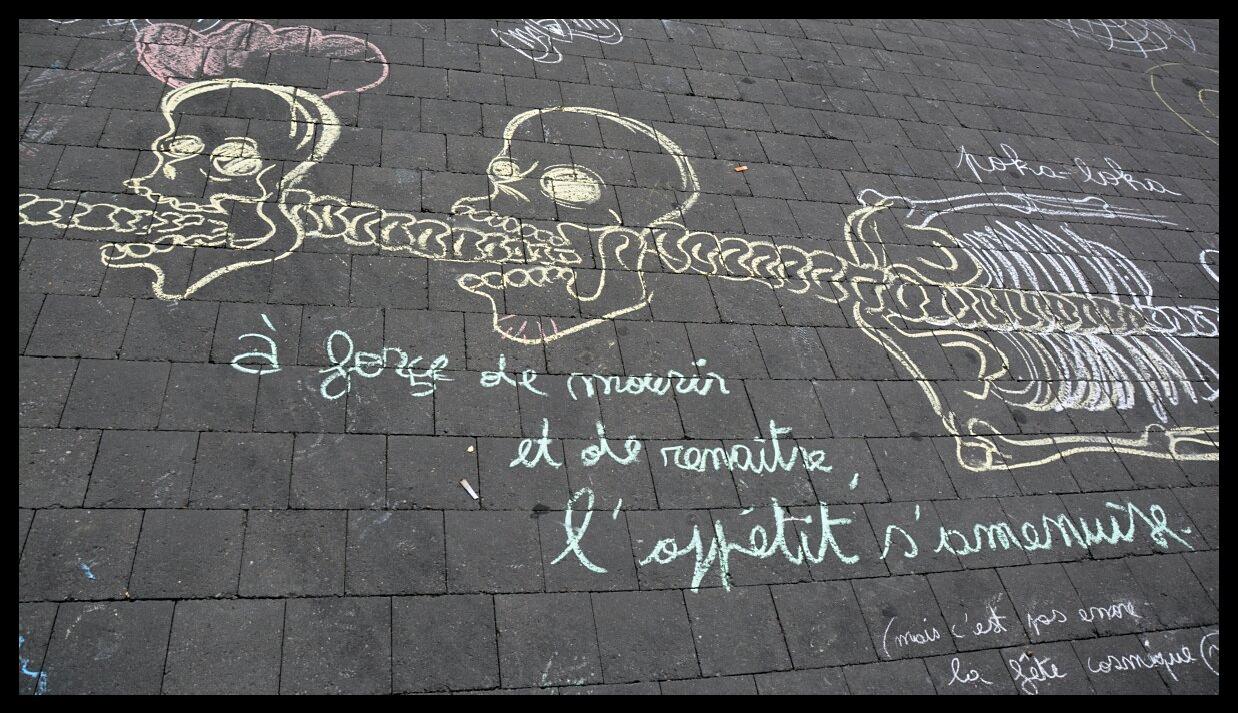 poka-loka
à force de mourir
et de renaître,
l'appétit s'amenuise.
(mais c'est pas encore
la fête cosmique